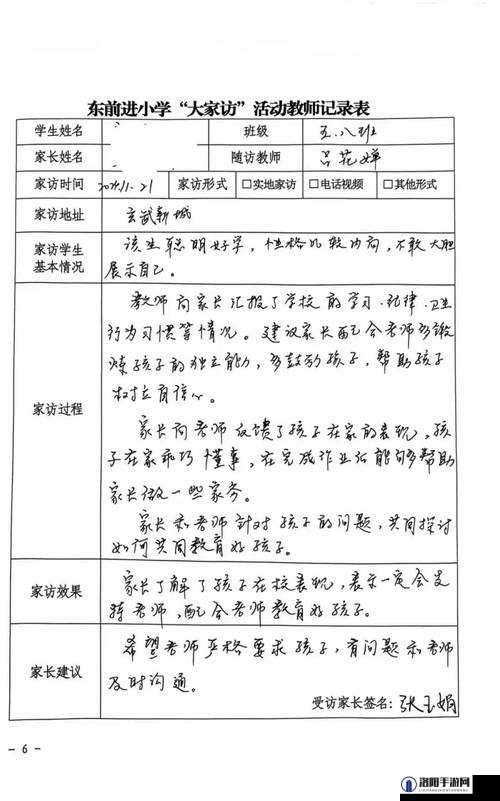 东前进小学“大家访”活动教师记录表
学生姓名 班级 五.八班
家长姓名 随访教师 吕花婵
家访时间 2024.11.21 家访形式 □实地家访 □电话视频 □其他形式
家访地址 玄武新城
家访学生 该生聪明好学，性格比较内向，不敢大胆
基本情况 展示自己。
教师向家长汇报了学校的学习、纪律、卫生
行为习惯等情况。建议家长配合老师多锻
炼孩子的独立能力，多鼓励孩子，帮助孩子
树立自信心。
家访过程
家长向老师反馈了孩子在家的表现，孩
子在家乖巧懂事，在完成作业后能够帮助
家长做一些家务。
家长和老师针对孩子的问题，共同探讨
如何共同教育好孩子。
家访效果 家长了解了孩子在校表现，表示一定会支
持老师，配合老师教育好孩子。
希望老师严格要求孩子，有问题和老师
家长建议 及时沟通。
受访家长签名：张玉娟
- 6 -
洛阳手游网